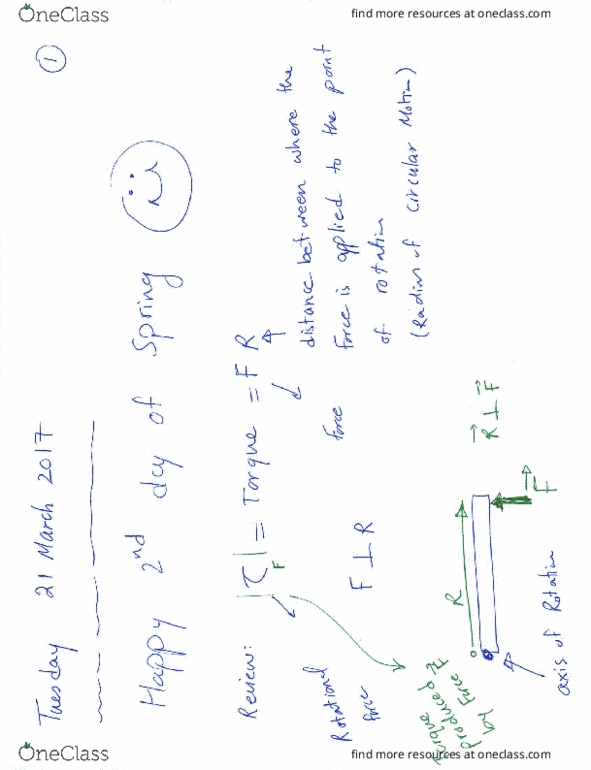 OneClass
find more resources at oneclass.com
Tuesday 21 March 2017
1
Happy 2nd day of Spring
Review: |τ|F = Torque = F R
Rotational force
F ⊥ R
Force
distance between where the
force is applied to the point
of rotation
(Radius of Circular Motion)
Torque
produced
by Force F
R
R ⊥ F
F
axis of Rotation
OneClass
find more resources at oneclass.com